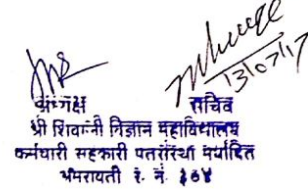 13/07/17
अध्यक्ष सचिव
श्री शिवाजी विज्ञान महाविद्यालय
कर्मचारी सहकारी पतसंस्था मर्यादित
अमरावती र. नं. ३०४